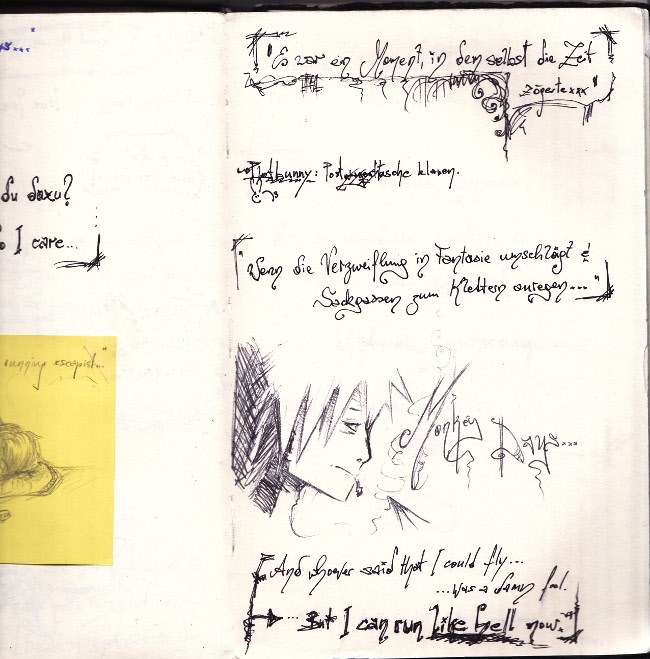 du dazu?
I care...
running escapist..."
"Es war ein Moment, in dem selbst die Zeit
zögerte xxx"
klauen.
"Wenn die Verzweiflung in Fantasie umschlägt &
Sackgassen zum Klettern anregen..."
Monkey Days...
And whoever said that I could fly...
...was a damn fool.
... But I can run like hell now.